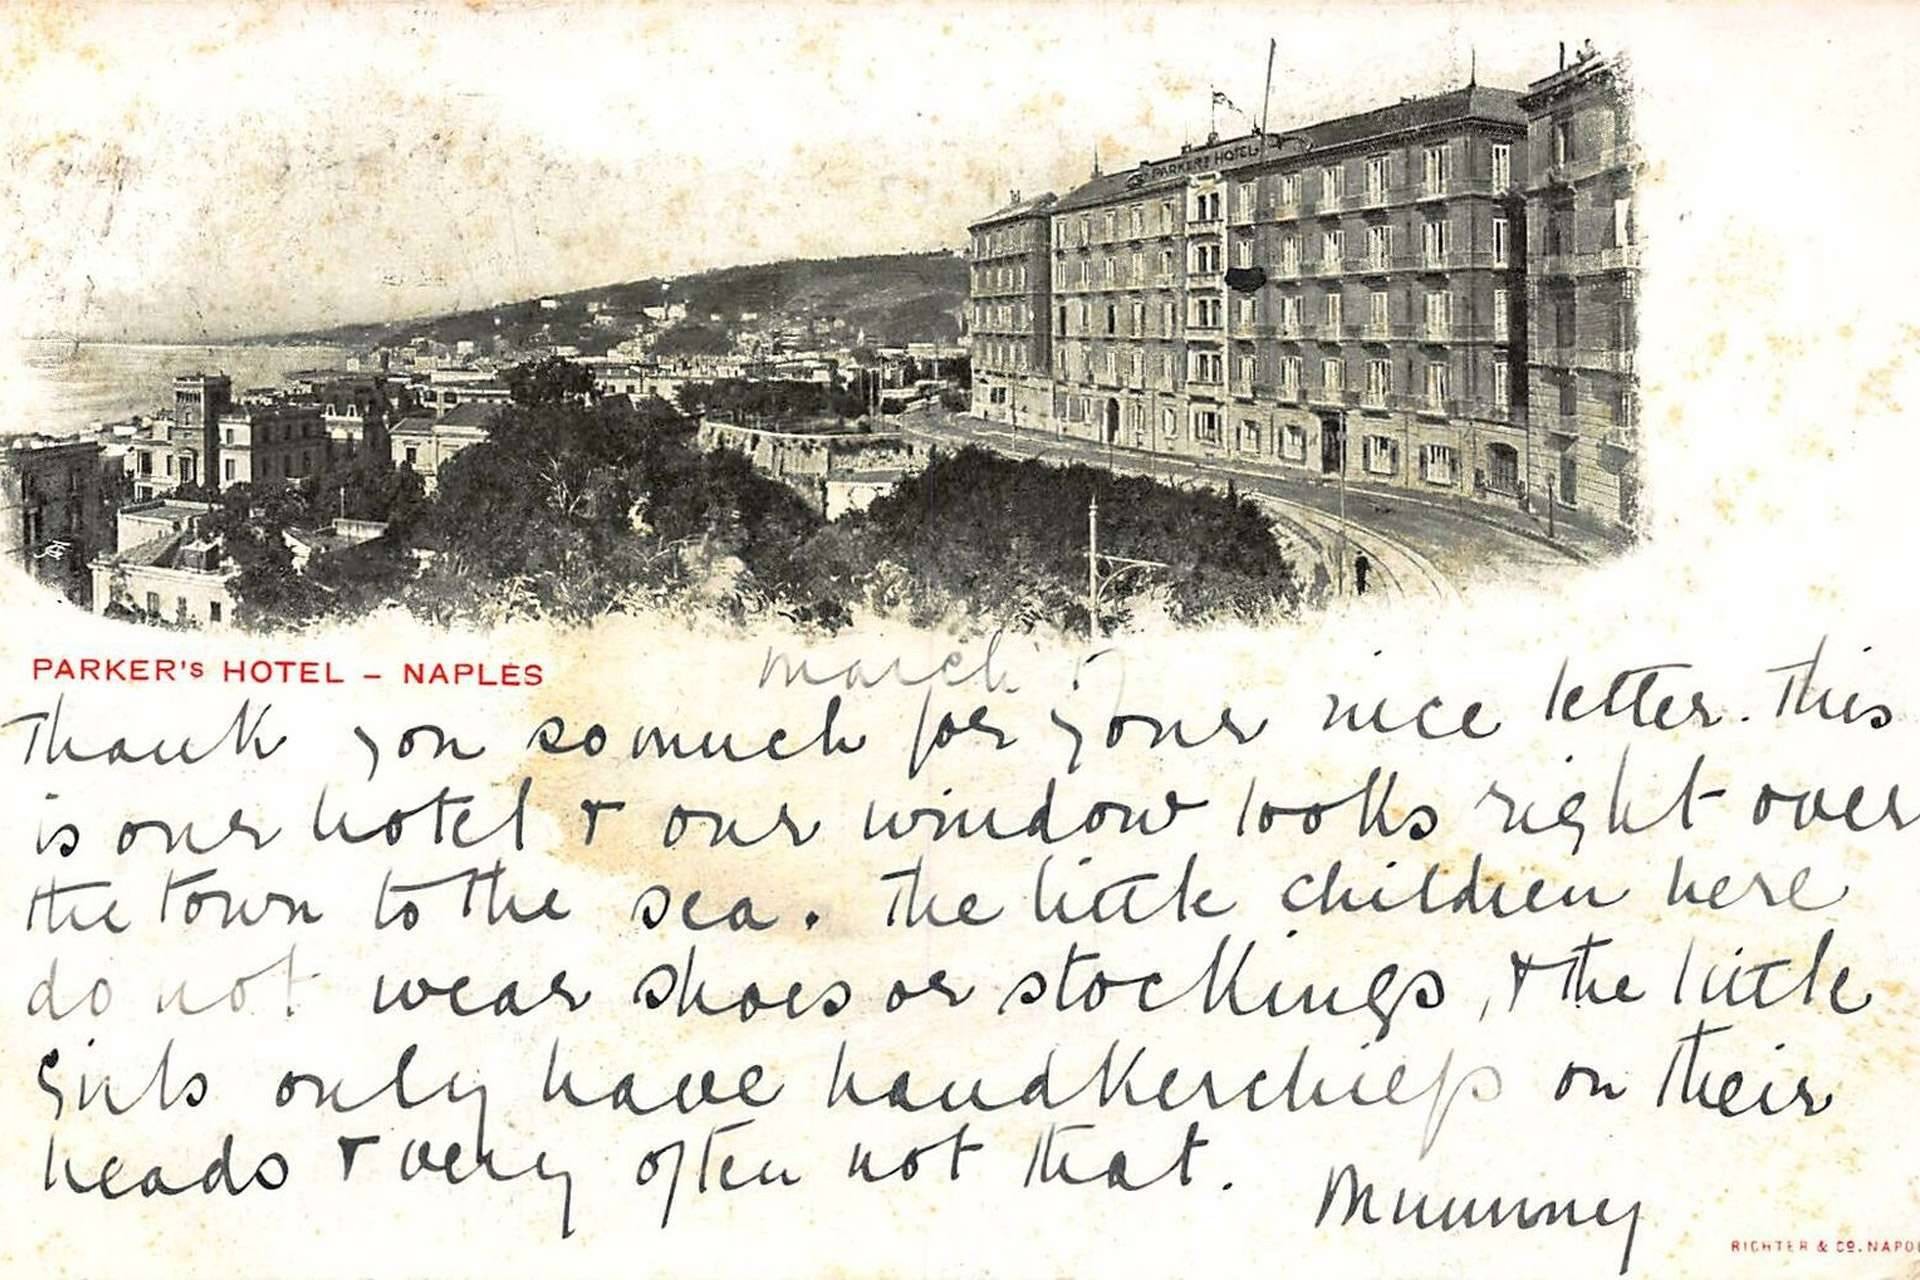 PARKER'S HOTEL
PARKER'S HOTEL – NAPLES
March 17
Thank you so much for your nice letter. This
is our hotel & our window looks right over
the town to the sea. The little children here
do not wear shoes or stockings, & the little
girls only have handkerchiefs on their
heads & very often not that.
Mummey
RICHTER & Co. NAPOLI